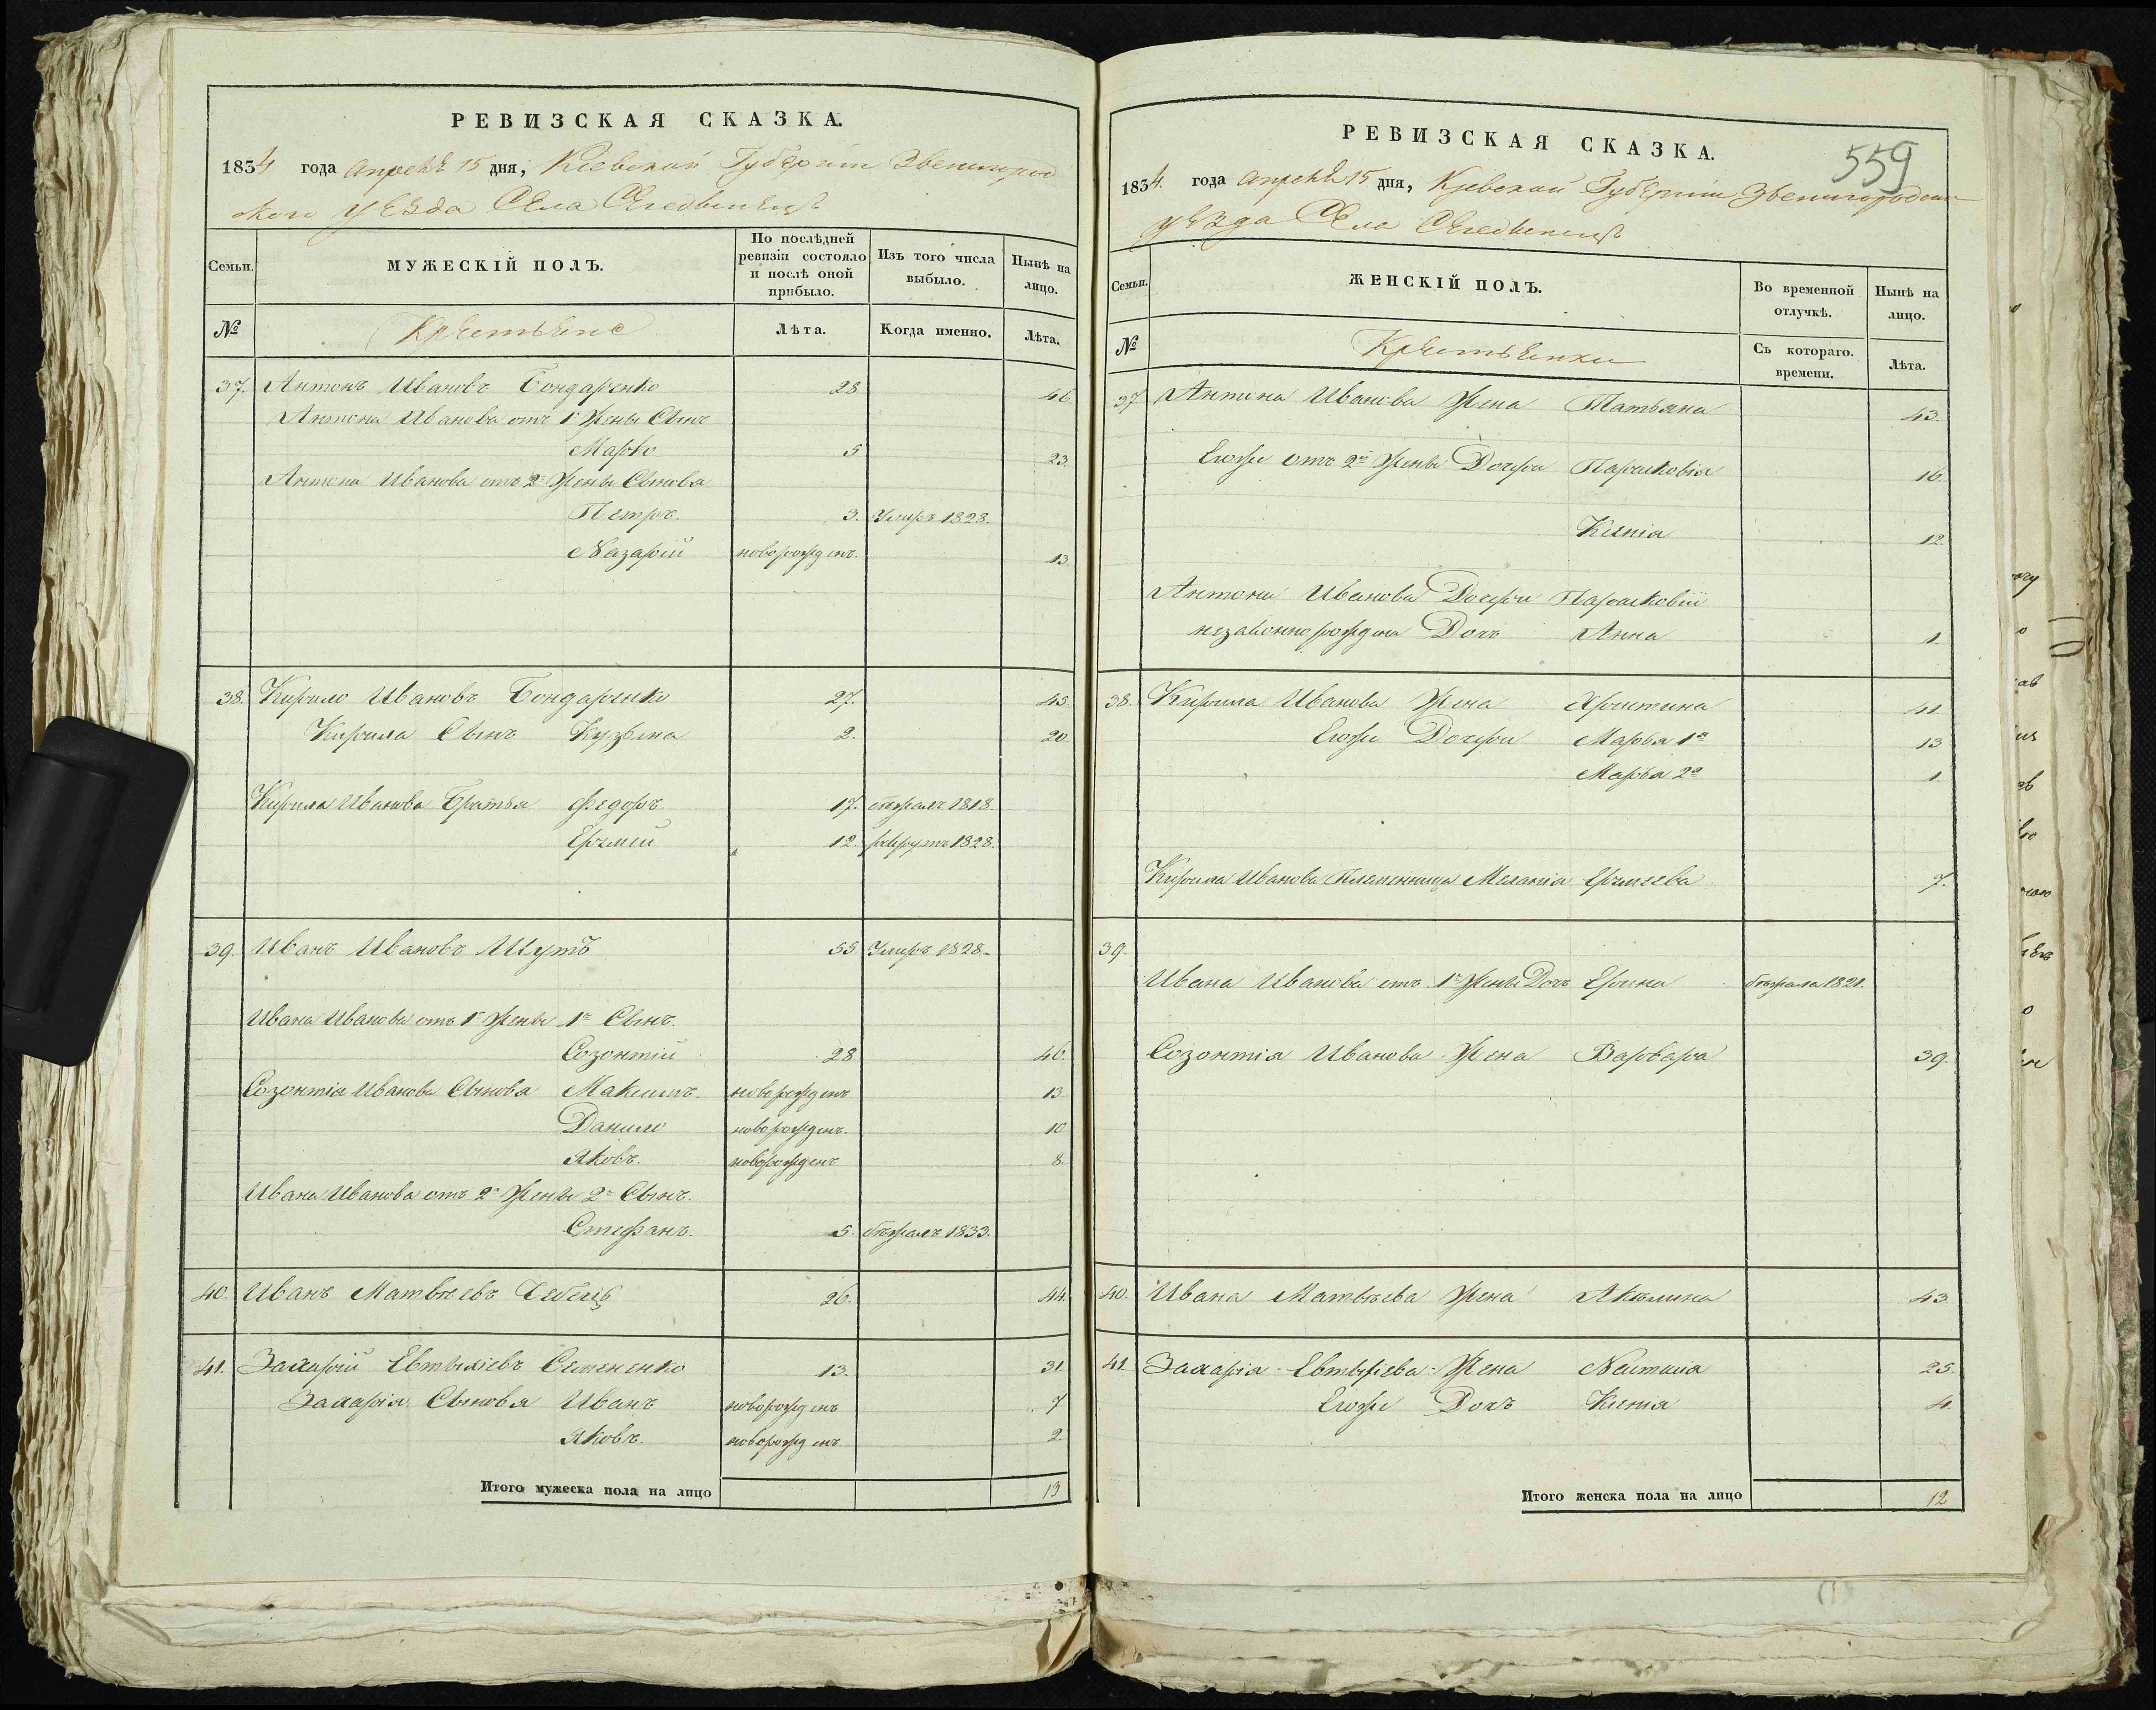 РЕВИЗСКАЯ СКАЗКА.
1834 года Апреля 15 дня, Кіевской Губерніи Звенигород
ского уезда Села
Семьи.
МУЖЕСКІЙ ПОЛЪ.
По послѣдней ревизіи состояло и послѣ оной прибыло.
Изъ того числа выбыло.
Нынѣ на лицо.
№
Крестьяне
Лѣта.
Когда именно.
Лѣта.
37. Антонъ Ивановъ Бондаренко 28 46.
Антона Иванова отъ 1й Жены Сынъ
Марко 5 23.
Антона Иванова отъ 2й Жены Сынова
Петръ. 3. Умеръ 1828.
Назарій новорожденъ. 13
38. Кирило Ивановъ Бондаренко 27. 45
Кирила Сынъ Кузьма 2. 20
Кирила Иванова Братья Федоръ 17. 1818.
Еремей 12. рекрутъ 1828.
39. Иванъ Ивановъ Шутъ 55 Умеръ 1828.
Ивана Иванова отъ 1й Жены 1й Сынъ.
Созонтій 28 46.
Созонтія Иванова Сынова Максимъ. новорожденъ 13
Данило новорожденъ. 10
Яковъ. новорожденъ 8.
Ивана Иванова отъ 2й Жены 2й Сынъ.
Стефанъ. 5. бѣжалъ 1833.
40. Иванъ Матвѣевъ 26. 44.
41. Захарій Евтыхіевъ Семененко 13. 31.
Захарія Сыновя Иванъ новорожденъ 7
Яковъ. новорожденъ 2
Итого мужеска пола на лицо 13
РЕВИЗСКАЯ СКАЗКА.
559
1834. года Апреля 15 дня, Кіевской Губерніи Звенигородског
уезда Села
Семьи.
ЖЕНСКІЙ ПОЛЪ.
Во временной отлучкѣ.
Нынѣ на лицо.
№
Крестьянки
Съ котораго. времени.
Лѣта.
37. Антона Иванова Жена Татьяна 43.
Егожъ отъ 2й Жены Дочери Парасковія 16.
Ксенія 12
Антона Иванова Дочери Парасковіи
незаконнорождена Дочь Анна 1.
38. Кирила Иванова Жена Христина 41.
Егоже Дочери Марья 1я 13
Марья 2я 1.
Кирила Иванова Племянница Меланія Еремеева 7.
39.
Ивана Иванова отъ 1й Жены Дочь Ерина бѣжала 1821.
Созонтія Иванова Жена Варвара 39.
40. Ивана Матвѣева Жена Акилина 43.
41. Захарія Евтыхіева Жена 25.
Егоже Дочь Ксенія 4.
Итого женска пола на лицо 12